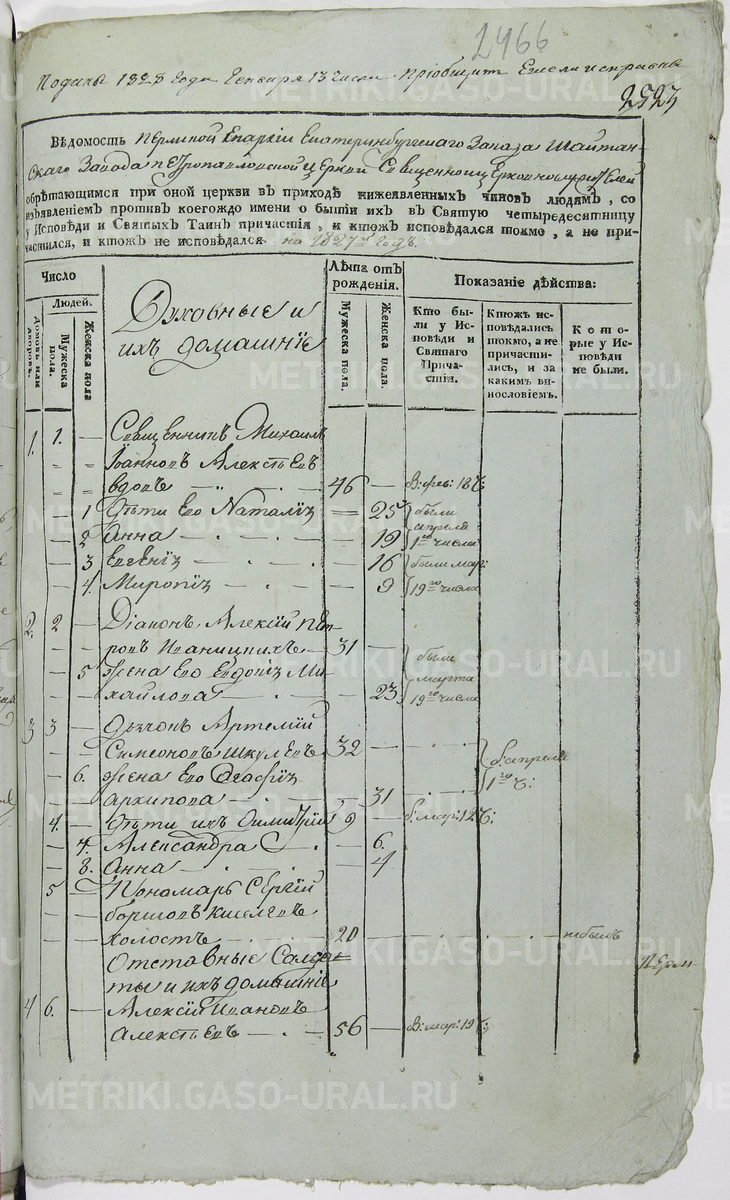 2466
Поданы 1828 года Генваря 13 числа. Приобщить Ежели исправны
2523
Вѣдомость Пермской Епархіи Екатеринбургскаго Заказа Шайтан-
скаго Завода Петропавловской церкви Священно и церковнослужителей
обрѣтающимся при оной церкви въ приходѣ нижеявленныхъ чиновъ людямъ, со
изъявленіемъ противъ коегождо имени о бытіи ихъ въ Святую четыредесятницу
у Исповѣди и Святыхъ Таинъ причастія, и ктожъ исповѣдался токмо, а не при-
частился, и ктожъ не исповѣдался на 1827й Годъ.
Число
Лѣта отъ рожденія.
Показаніе дѣйства:
Людей.
Домовъ или дворовъ.
Мужеска пола.
Женска пола
Духовные и
ихъ домашніе
Мужеска пола.
Женска пола.
Кто бы-
ли у Ис-
повѣди и
Святаго
Прича-
стія.
Ктожъ ис-
повѣдались
токмо, а не
причасти-
лись, и за
какимъ ви-
нословіемъ.
Кото-
рые у Ис-
повѣди
не были.
1. 1. — Священникъ Михаилъ
Іоанновъ Алексѣевъ
вдовъ 46 — в: фев: 18 ч:
1 Дѣти Его Наталія — 25 были
2 Анна — 19 апрѣля 1го числа
3 Евгенія — 16 были мар:
4. Миропія — 9 19го числа
2. 2 — Діаконъ Алексій Пет-
ровъ Иваницкихъ — 31 —
5 Жена Его Евдокія Ми- были
хайлова — 23 марта 19го числа
3 3 — Дьячокъ Артемій
Симеоновъ Шкулевъ 32 — б: апрѣля
6. Жена Его Агафія 1го ч:
Архипова — 31
4. — Дѣти ихъ Димитрій 9 б: мар: 12 ч:
7. Александра — 6.
8. Анна — 4
5 — Пономарь Сергій
Киселевъ
холостъ — 20 — не былъ
Отставные Солда-
ты и ихъ домашніе
Перм
4 6. — Алексій Ивановъ
Алексѣевъ — 56 — в: мар: 19 ч:
METRIKI.GASO-URAL.RU